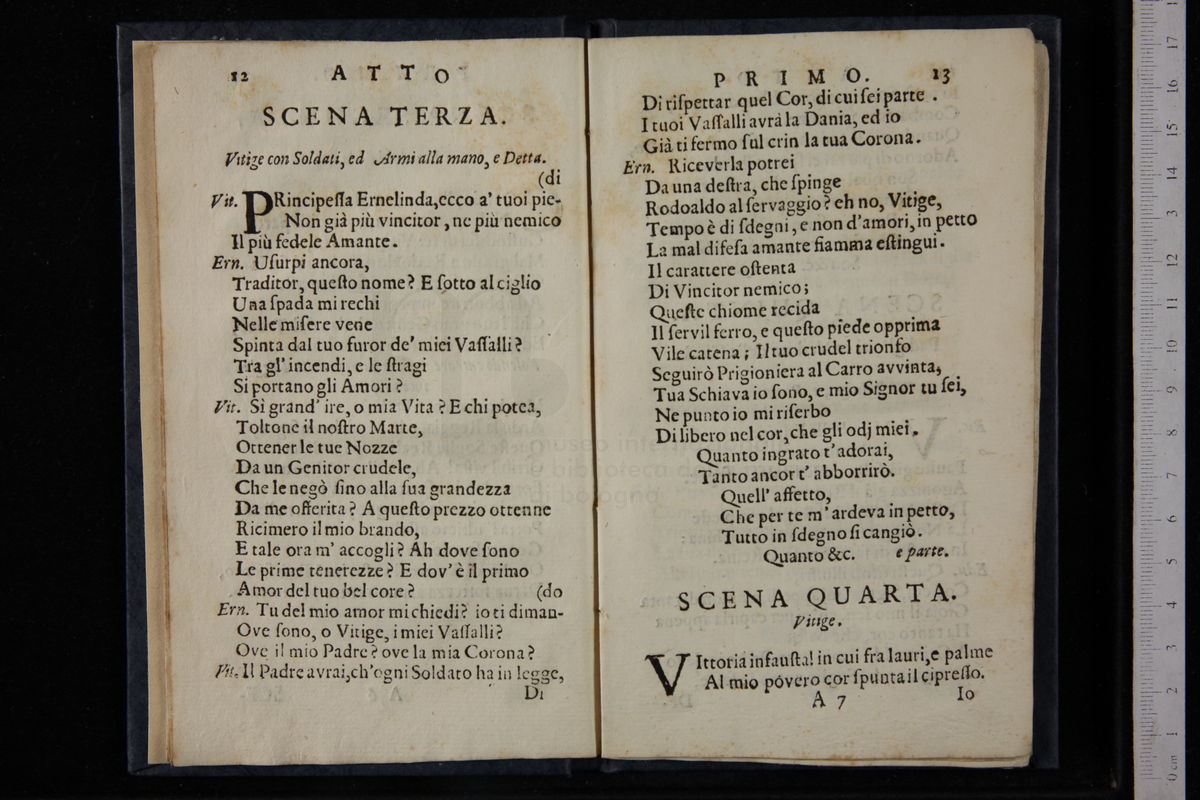 12 ATTO
SCENA TERZA.
Vitige con Soldati, ed Armi alla mano, e Detta.
(di
Vit. PRincipeſſa Ernelinda, ecco a' tuoi pie-
Non già più vincitor, ne più nemico
Il più fedele Amante.
Ern. Uſurpi ancora,
Traditor, queſto nome? E ſotto al ciglio
Una ſpada mi rechi
Nelle miſere vene
Spinta dal tuo furor de' miei Vaſſalli?
Tra gl' incendi, e le ſtragi
Si portano gli Amori?
Vit. Sì grand' ire, o mia Vita? E chi potea,
Toltone il noſtro Marte,
Ottener le tue Nozze
Da un Genitor crudele,
Che le negò ſino alla ſua grandezza
Da me offerita? A queſto prezzo ottenne
Ricimero il mio brando,
E tale ora m' accogli? Ah dove ſono
Le prime tenerezze? E dov' è il primo
Amor del tuo bel core? (do
Ern. Tu del mio amor mi chiedi? io ti diman-
Ove ſono, o Vitige, i miei Vaſſalli?
Ove il mio Padre? ove la mia Corona?
Vit. Il Padre avrai, ch'ogni Soldato ha in legge,
Di
PRIMO. 13
Di riſpettar quel Cor, di cui ſei parte.
I tuoi Vaſſalli avrà la Dania, ed io
Già ti fermo ſul crin la tua Corona.
Ern. Riceverla potrei
Da una deſtra, che ſpinge
Rodoaldo al ſervaggio? eh no, Vitige,
Tempo è di ſdegni, e non d'amori, in petto
La mal difeſa amante fiamma eſtingui.
Il carattere oſtenta
Di Vincitor nemico;
Queſte chiome recida
Il ſervil ferro, e queſto piede opprima
Vile catena; Il tuo crudel trionfo
Seguirò Prigioniera al Carro avvinta,
Tua Schiava io ſono, e mio Signor tu ſei,
Ne punto io mi riſerbo
Di libero nel cor, che gli odj miei.
Quanto ingrato t' adorai,
Tanto ancor t' abborrirò.
Quell' affetto,
Che per te m' ardeva in petto,
Tutto in ſdegno ſi cangiò.
Quanto &c. e parte.
SCENA QUARTA.
Vitige.
VIttoria infauſta! in cui fra lauri, e palme
Al mio povero cor ſpunta il cipreſſo.
A 7 Io